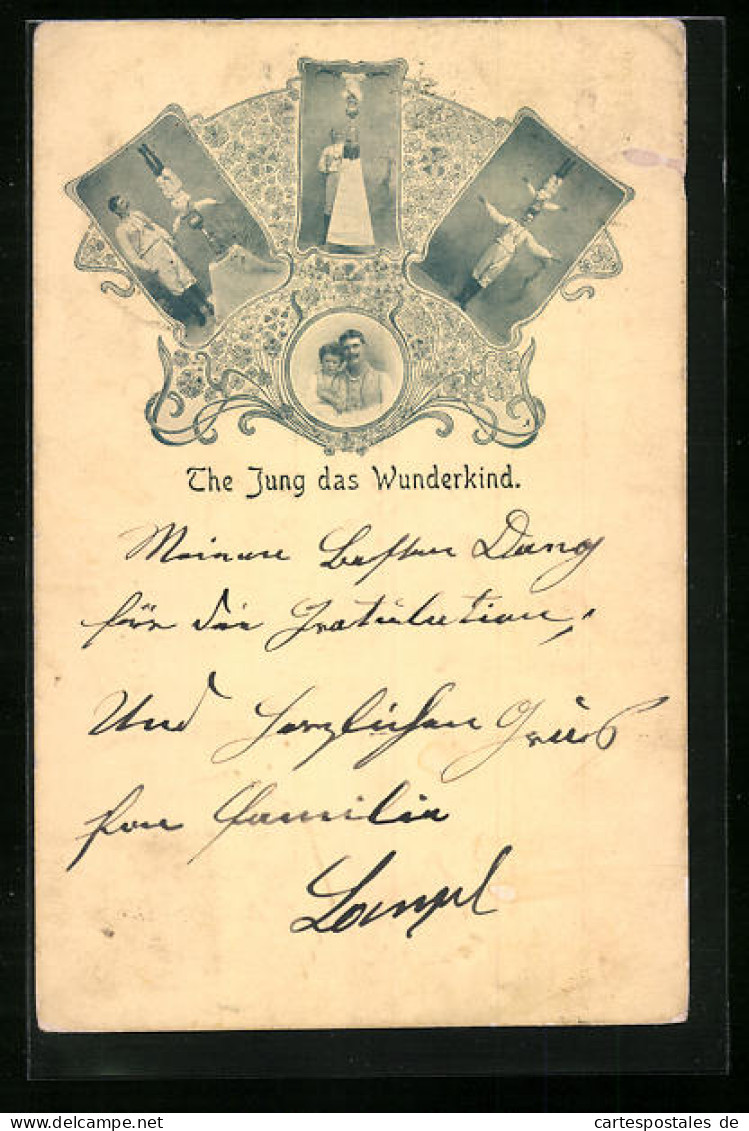 The Jung das Wunderkind.
Meinen besten Dang
für die Gratulation,
Und Herzlichen Grüs
fon Familie
Lampl
cartespostales de